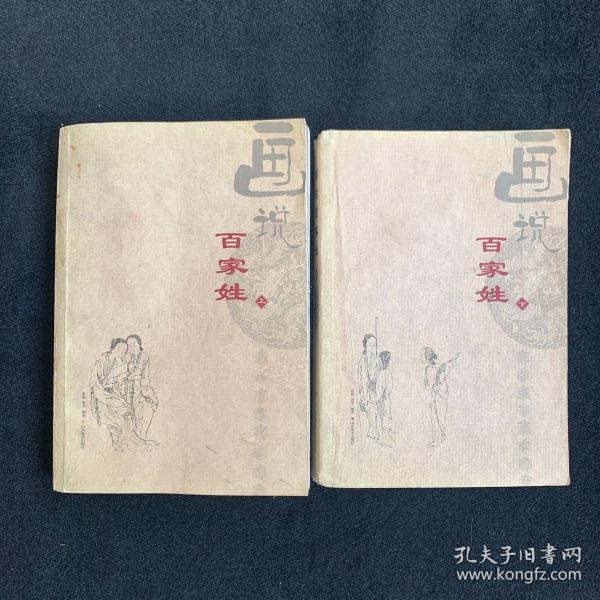 画说
百家姓
上
画说
百家姓
下
孔夫子旧书网
www.kongfz.com